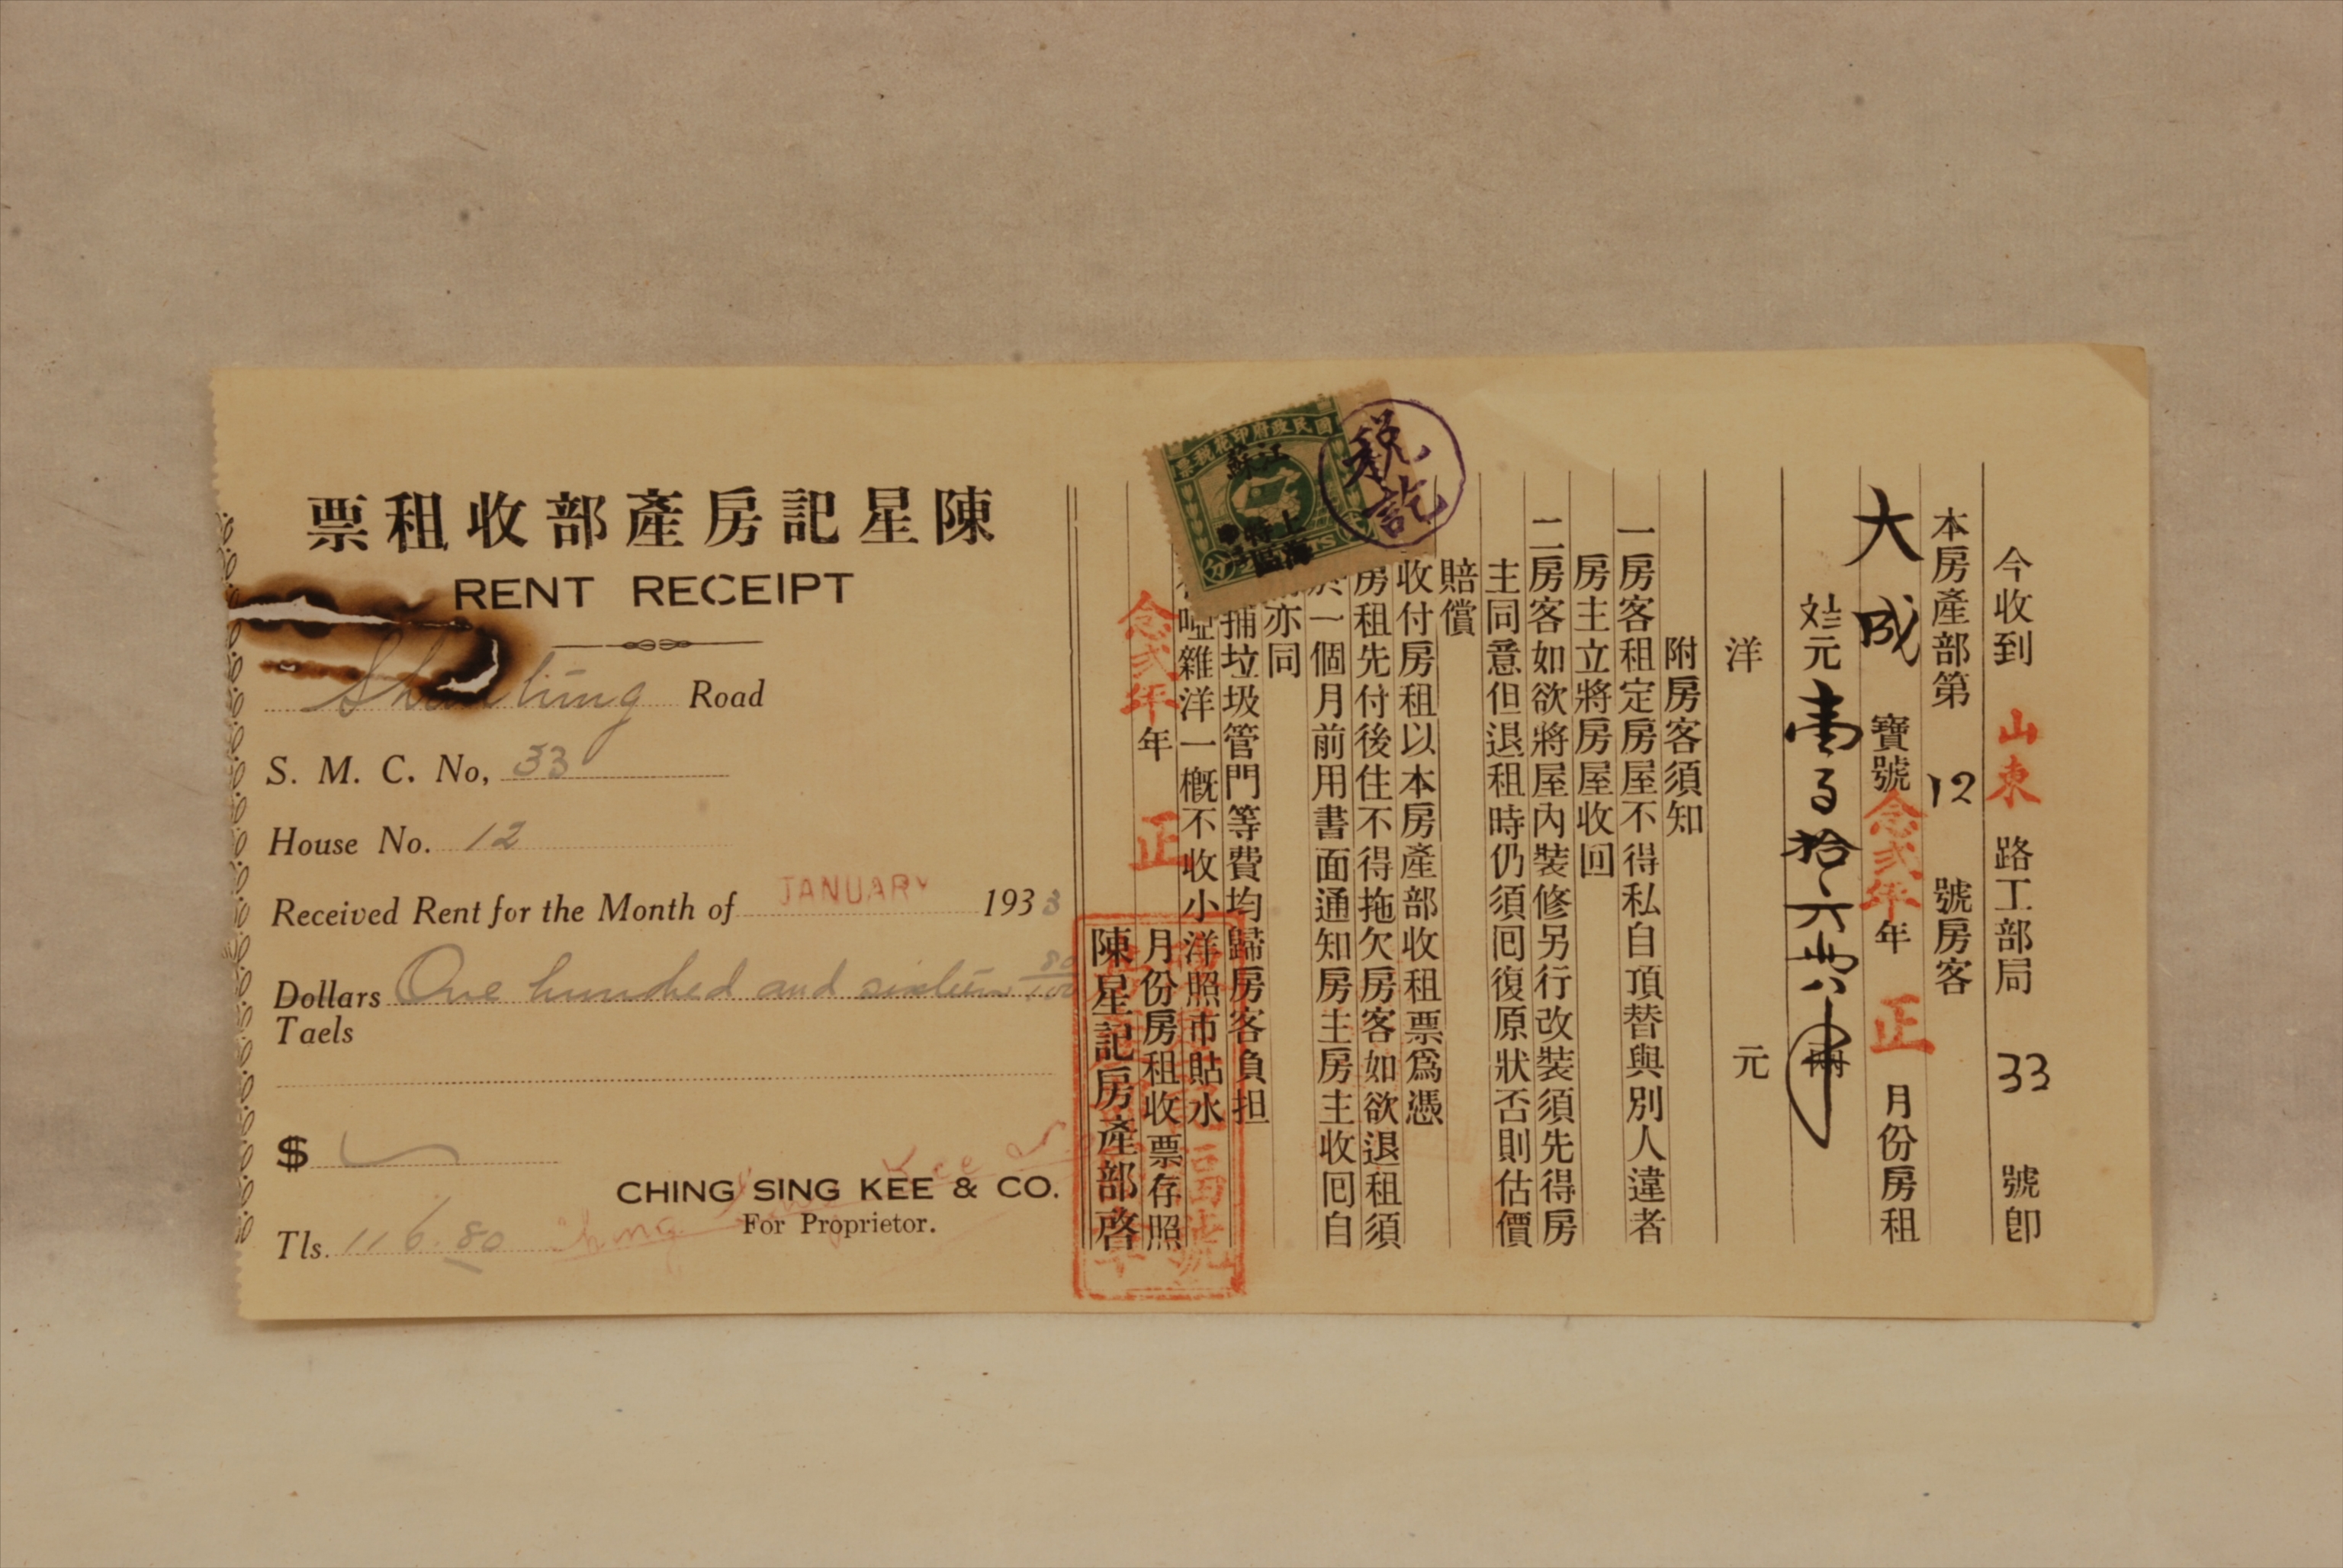 陳星記房產部收租票
RENT RECEIPT
Shantung Road
S. M. C. No, 33
House No. 12
Received Rent for the Month of JANUARY 1933
Dollars One hundred and sixteen 80/100
Taels
$
Tls. 116.80
CHING SING KEE & CO.
For Proprietor.
今收到 山東 路工部局 33 號卽
本房產部第 12 號房客
大成 寶號 念弍年年 正 月份房租
元 壹 拾六 兩
洋 元
附房客須知
一房客租定房屋不得私自頂替與別人違者
房主立將房屋收回
二房客如欲將屋內裝修另行改裝須先得房
主同意但退租時仍須囘復原狀否則估價
賠償
收付房租以本房產部收租票爲憑
房租先付後住不得拖欠房客如欲退租須
於一個月前用書面通知房主房主收囘自
亦同
捕垃圾管門等費均歸房客負担
啞雜洋一概不收小洋照市貼水
念弍年年 正 月份房租收票存照
陳星記房產部啓
國民政府印花稅票
江蘇
上海
特區
稅訖